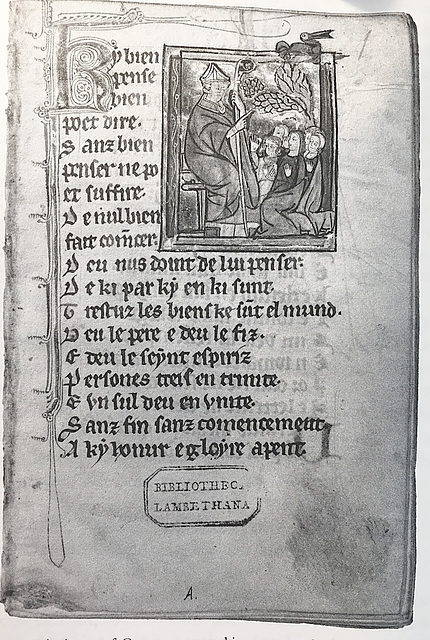 Ky bien
pense
bien
poet dire.
Sanz bien
penser ne po
et suffire.
De nul bien
fait comencer.
Deu nus doint de lui penser.
De ki par ky en ki sunt.
Trestuz les biens ke sunt el mund.
Deu le pere e deu le fiz.
E deu le seynt espiriz.
Persones treis en trinite.
E vn sul deu en vnite.
Sanz fin sanz comencement.
A ky honur e gloyre apent.
BIBLIOTHEC.
LAMBETHANA
A.